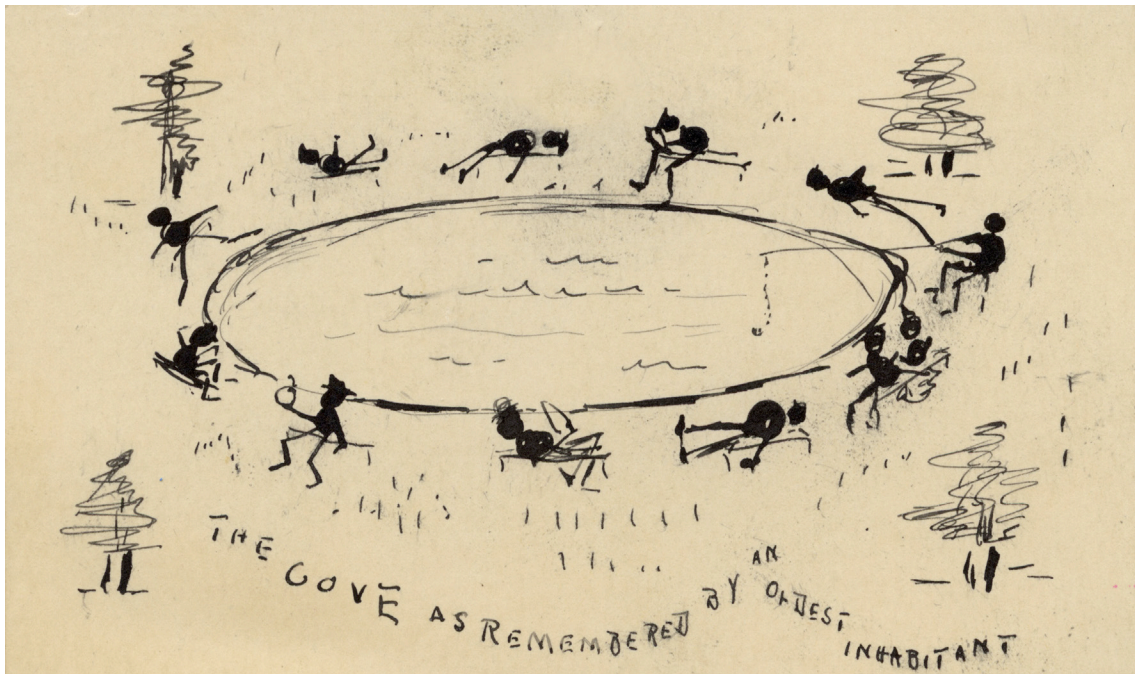 THE COVE AS REMEMBERED BY AN OLDEST INHABITANT